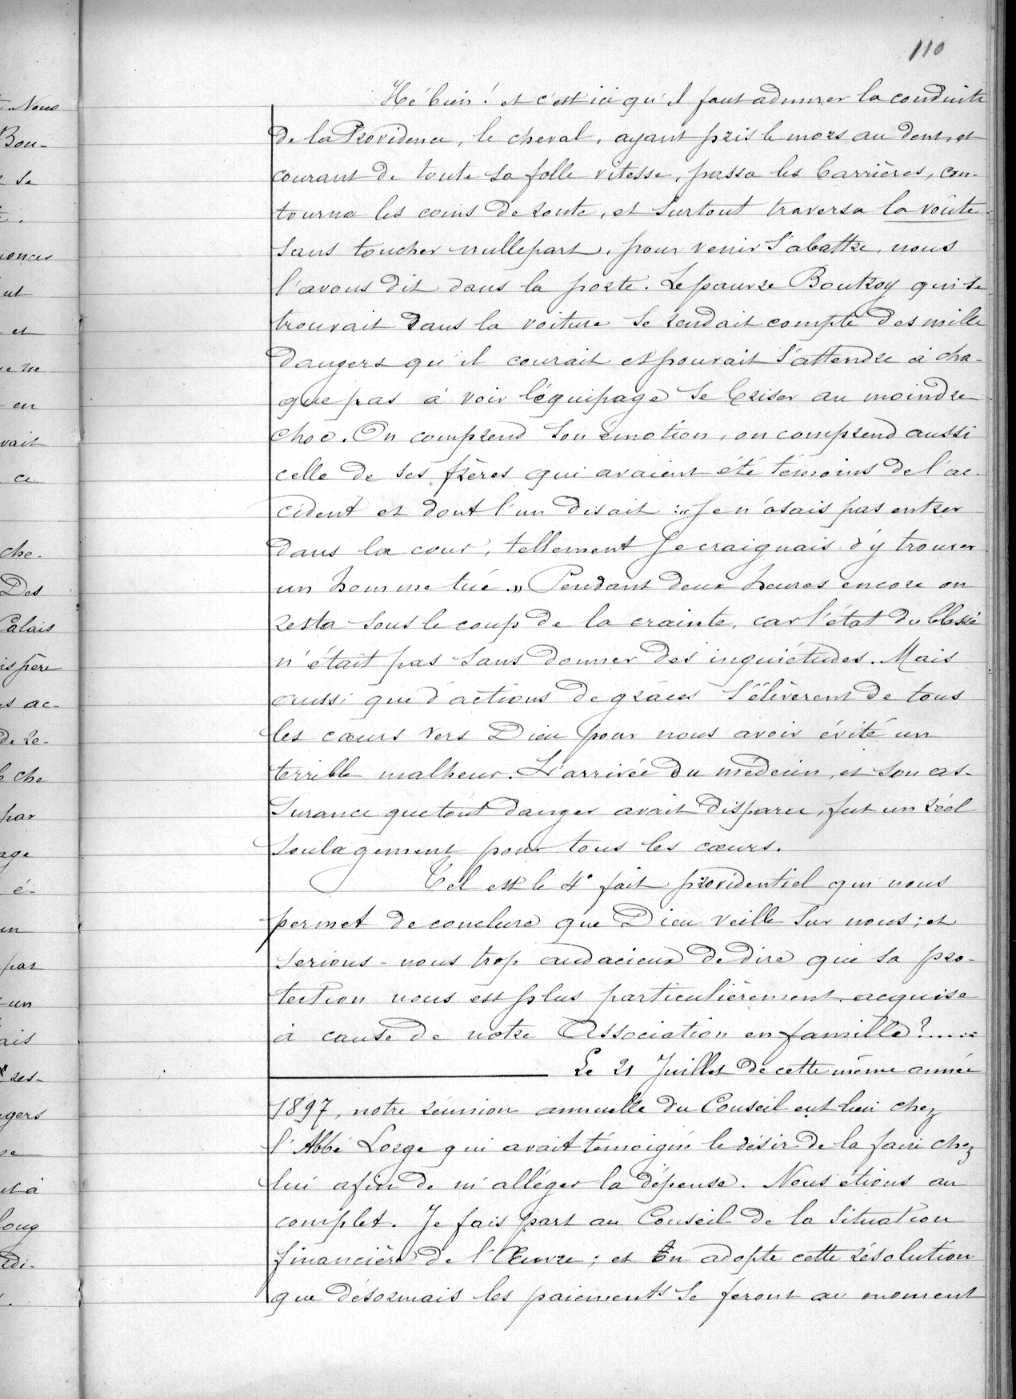 110
Hé bien! et c'est ici qu'il faut admirer la conduite
de la Providence, le cheval, ayant pris le mors au dent, et
courant de toute sa folle vitesse, passa les barrières, con-
tourna les coins de route, et surtout traversa la voûte
sans toucher nullepart, pour venir s'abattre, nous
l'avons dit dans la porte. Le pauvre Boutroy qui se
trouvait dans la voiture se rendait compte des mille
dangers qu'il courait et pouvait s'attendre à cha-
que pas à voir l'équipage se briser au moindre
choc. On comprend son émotion, on comprend aussi
celle de ses frères qui avaient été témoins de l'ac-
cident et dont l'un disait : "Je n'osais pas entrer
dans la cour, tellement je craignais d'y trouver
un homme tué." Pendant deux heures encore on
resta sous le coup de la crainte, car l'état du blessé
n'était pas sans donner des inquiétudes. Mais
aussi que d'actions de grâces s'élèverent de tous
les cœurs vers Dieu pour nous avoir évité un
terrible malheur. L'arrivée du médecin, et son as-
surance que tout danger avait disparu, fut un réel
soulagement pour tous les cœurs.
Tel est le 4° fait providentiel qui nous
permet de conclure que Dieu veille sur nous; et
serions-nous trop audacieux de dire que sa pro-
tection nous est plus particulièrement acquise
à cause de notre Association en famille?.....
Le 21 Juillet de cette même année
1897, notre réunion annuelle du Conseil eut lieu chez
l'Abbé Lorge qui avait témoigné le désir de la faire chez
lui afin de m'alléger la dépense. Nous étions au
complet. Je fais part au Conseil de la situation
financière de l'Œuvre; et on adopte cette résolution
que désormais les paiements se feront au moment
Nous
Bou-
se
et
en
vait
ce
che-
Des
Calais
père
ac-
de re-
che
par
age
é-
par
un
ais
res-
gers
long